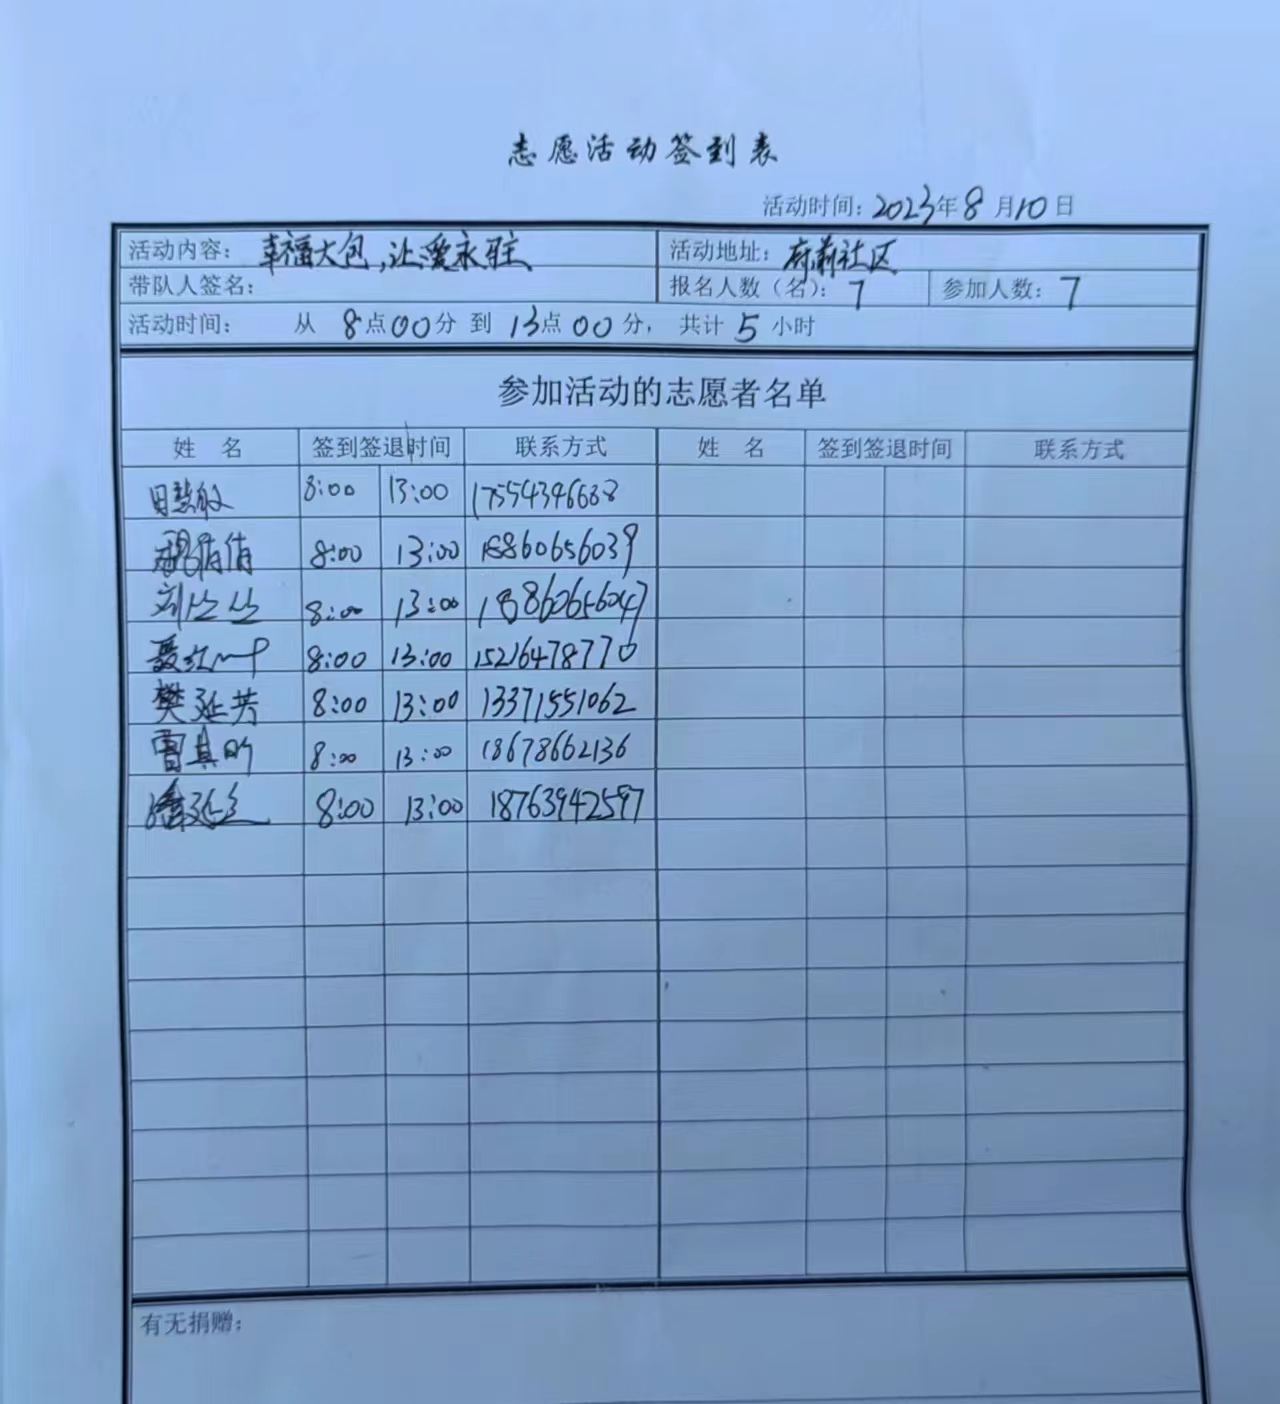 志愿活动签到表
活动时间：2023年8月10日
活动内容：幸福大包，让爱永驻 活动地址：府前社区
带队人签名： 报名人数（名）：7 参加人数：7
活动时间： 从 8点00分 到 13点00分， 共计 5 小时
参加活动的志愿者名单
姓 名 签到签退时间 联系方式 姓 名 签到签退时间 联系方式
8:00 13:00 17554346638
倩倩 8:00 13:00 18860656039
刘丛丛 8:00 13:00 18860656047
聂红 8:00 13:00 15216478770
樊延芳 8:00 13:00 13371551062
8:00 13:00 18678662136
8:00 13:00 18763942597
有无捐赠：